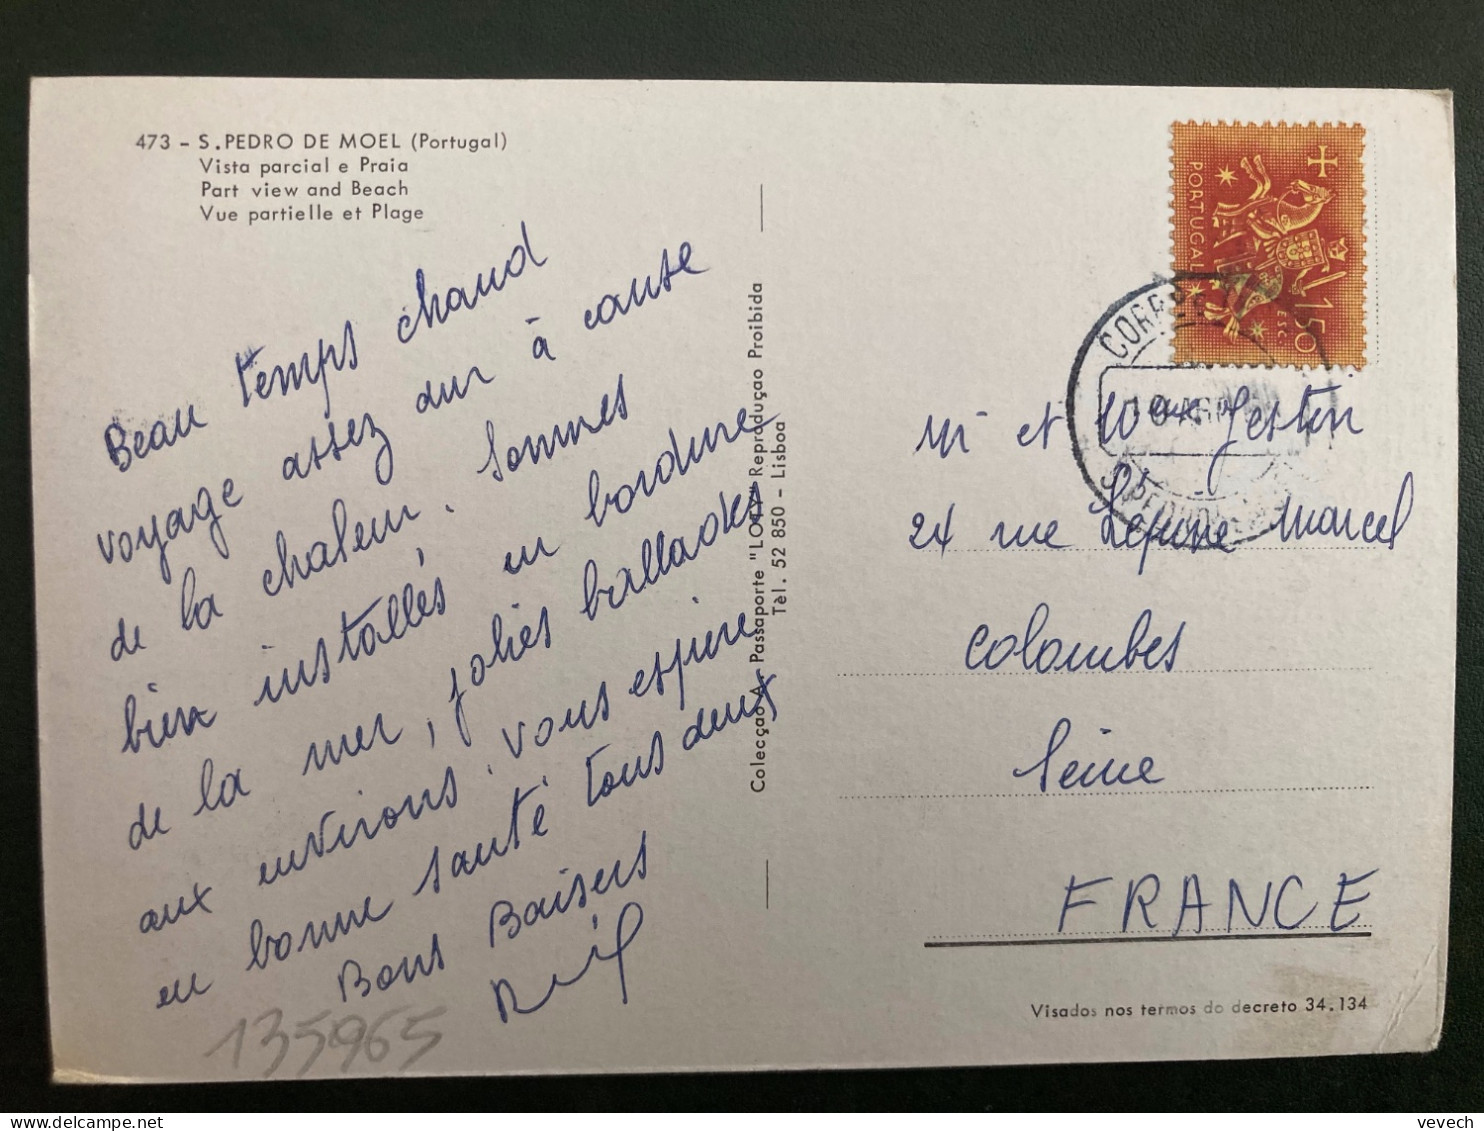 473 - S.PEDRO DE MOEL (Portugal)
Vista parcial e Praia
Part view and Beach
Vue partielle et Plage
Beau temps chaud
voyage assez dur à cause
de la chaleur. Sommes
bien installés en bordure
de la mer, jolies ballades
aux environs. vous espère
en bonne santé tous deux
Bons Baisers
135965
Colecção A. Passaporte "LOTY" Reprodução Proibida
Tèl. 52 850 - Lisboa
PORTUGAL
1$50
ESC.
CORREIOS
Mr et Mme Jestin
24 rue Lepine Marcel
Colombes
Seine
FRANCE
Visados nos termos do decreto 34.134
vevech